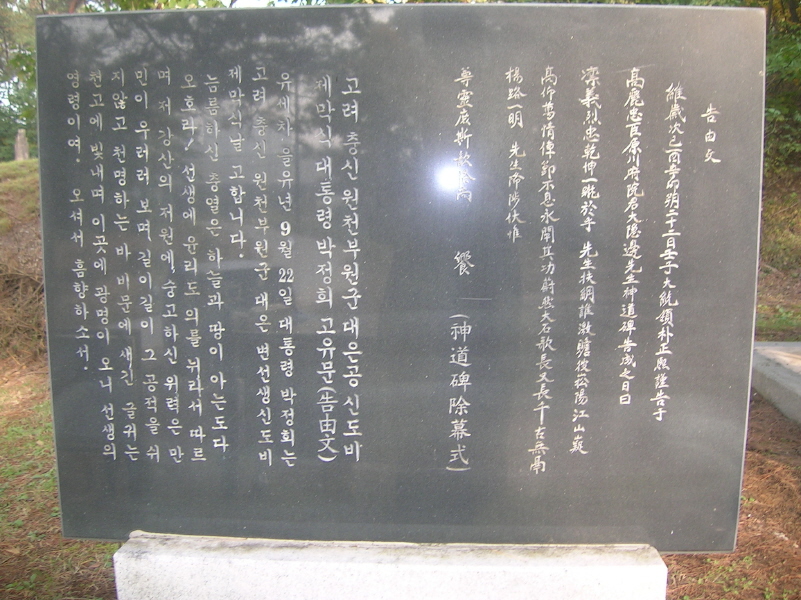 告由文
維歲次己酉辛卯朔二十二日壬子大統領朴正熙謹告于
高麗忠臣原川府院君大隱邊先生神道碑告成之日曰
義烈忠乾坤一 於乎 先生扶綱 江山
高仰 不息永 其功 大石 長又長千古無
路一明 先生
尊靈庶 饗 (神道碑除幕式)
고려 충신 원천부원군 대은공 신도비
제막식 대통령 박정희 고유문(告由文)
유세차 을유년 9월 22일 대통령 박정희는
고려 충신 원천부원군 대은 변선생신도비
제막식날 고합니다.
늠름하신 충열은 하늘과 땅이 아는도다
오호라! 선생에 윤리도 의를 뉘라서 따르
며 저 강산의 저원에, 숭고하신 위력은 만
민이 우러러 보며 길이길이 그 공적을 쉬
지않고 천명하는 바 비문에 새긴 글귀는
천고에 빛내며 이곳에 광명이 오니 선생의
영령이여. 오셔서 흠향하소서.